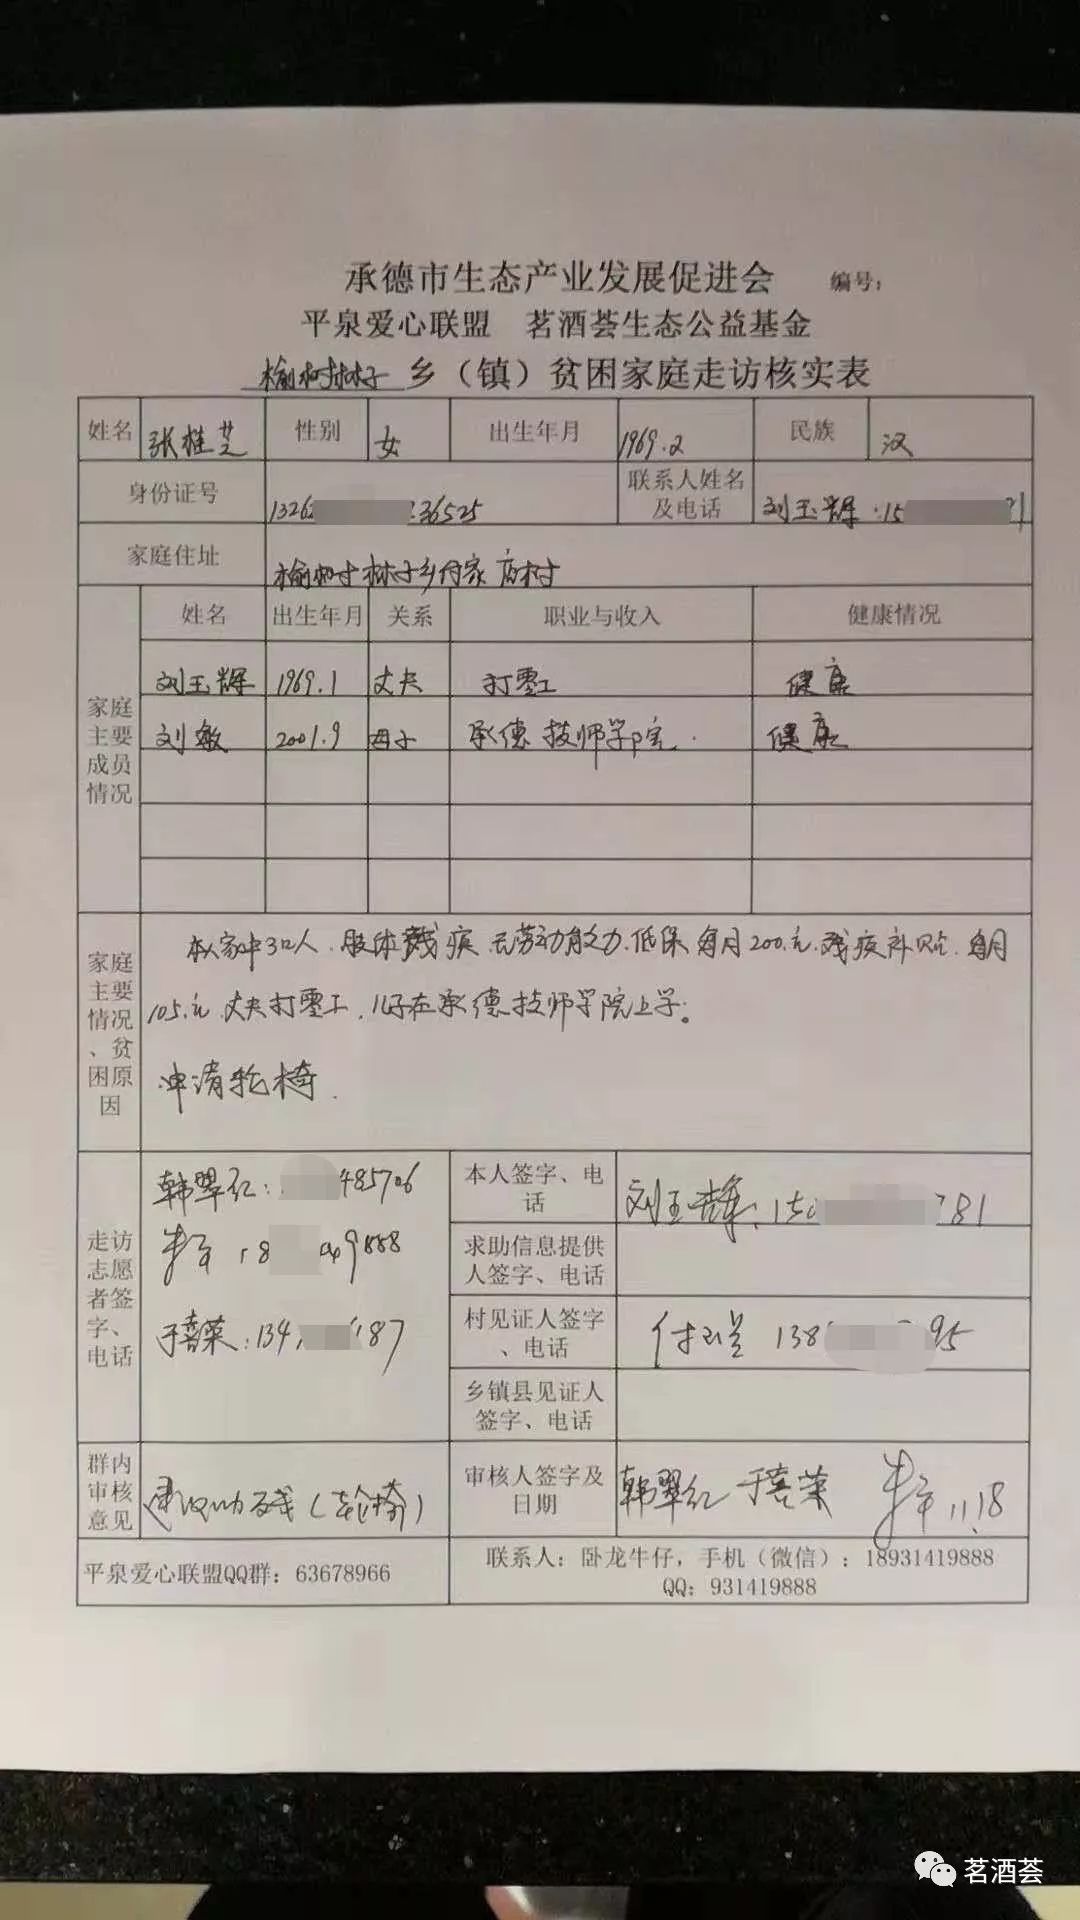 承德市生态产业发展促进会 编号：
平泉爱心联盟 茗酒荟生态公益基金
榆树林子 乡（镇）贫困家庭走访核实表
姓名 张桂芝 性别 女 出生年月 1969.2 民族 汉
身份证号 1326 36525 联系人姓名及电话 刘玉辉：15
家庭住址 榆树林子乡付家店村
家庭主要成员情况 姓名 出生年月 关系 职业与收入 健康情况
刘玉辉 1969.1 丈夫 打零工 健康
刘敏 2001.9 母子 承德技师学院. 健康
家庭主要情况、贫困原因
本人家中3口人.肢体残疾 无劳动能力.低保每月200.元.残疾补贴.每月
105.元.丈夫打零工.儿子在承德技师学院上学。
申请轮椅.
走访志愿者签字、电话
韩翠红： 485706
18 49888
于喜荣：134 187
本人签字、电话 刘玉辉：15 781
求助信息提供人签字、电话
村见证人签字、电话 138 95
乡镇县见证人签字、电话
群内审核意见 建议助残（轮椅）
审核人签字及日期 韩翠红 于喜荣 11.18
平泉爱心联盟QQ群：63678966
联系人：卧龙牛仔，手机（微信）：18931419888
QQ：931419888
茗酒荟